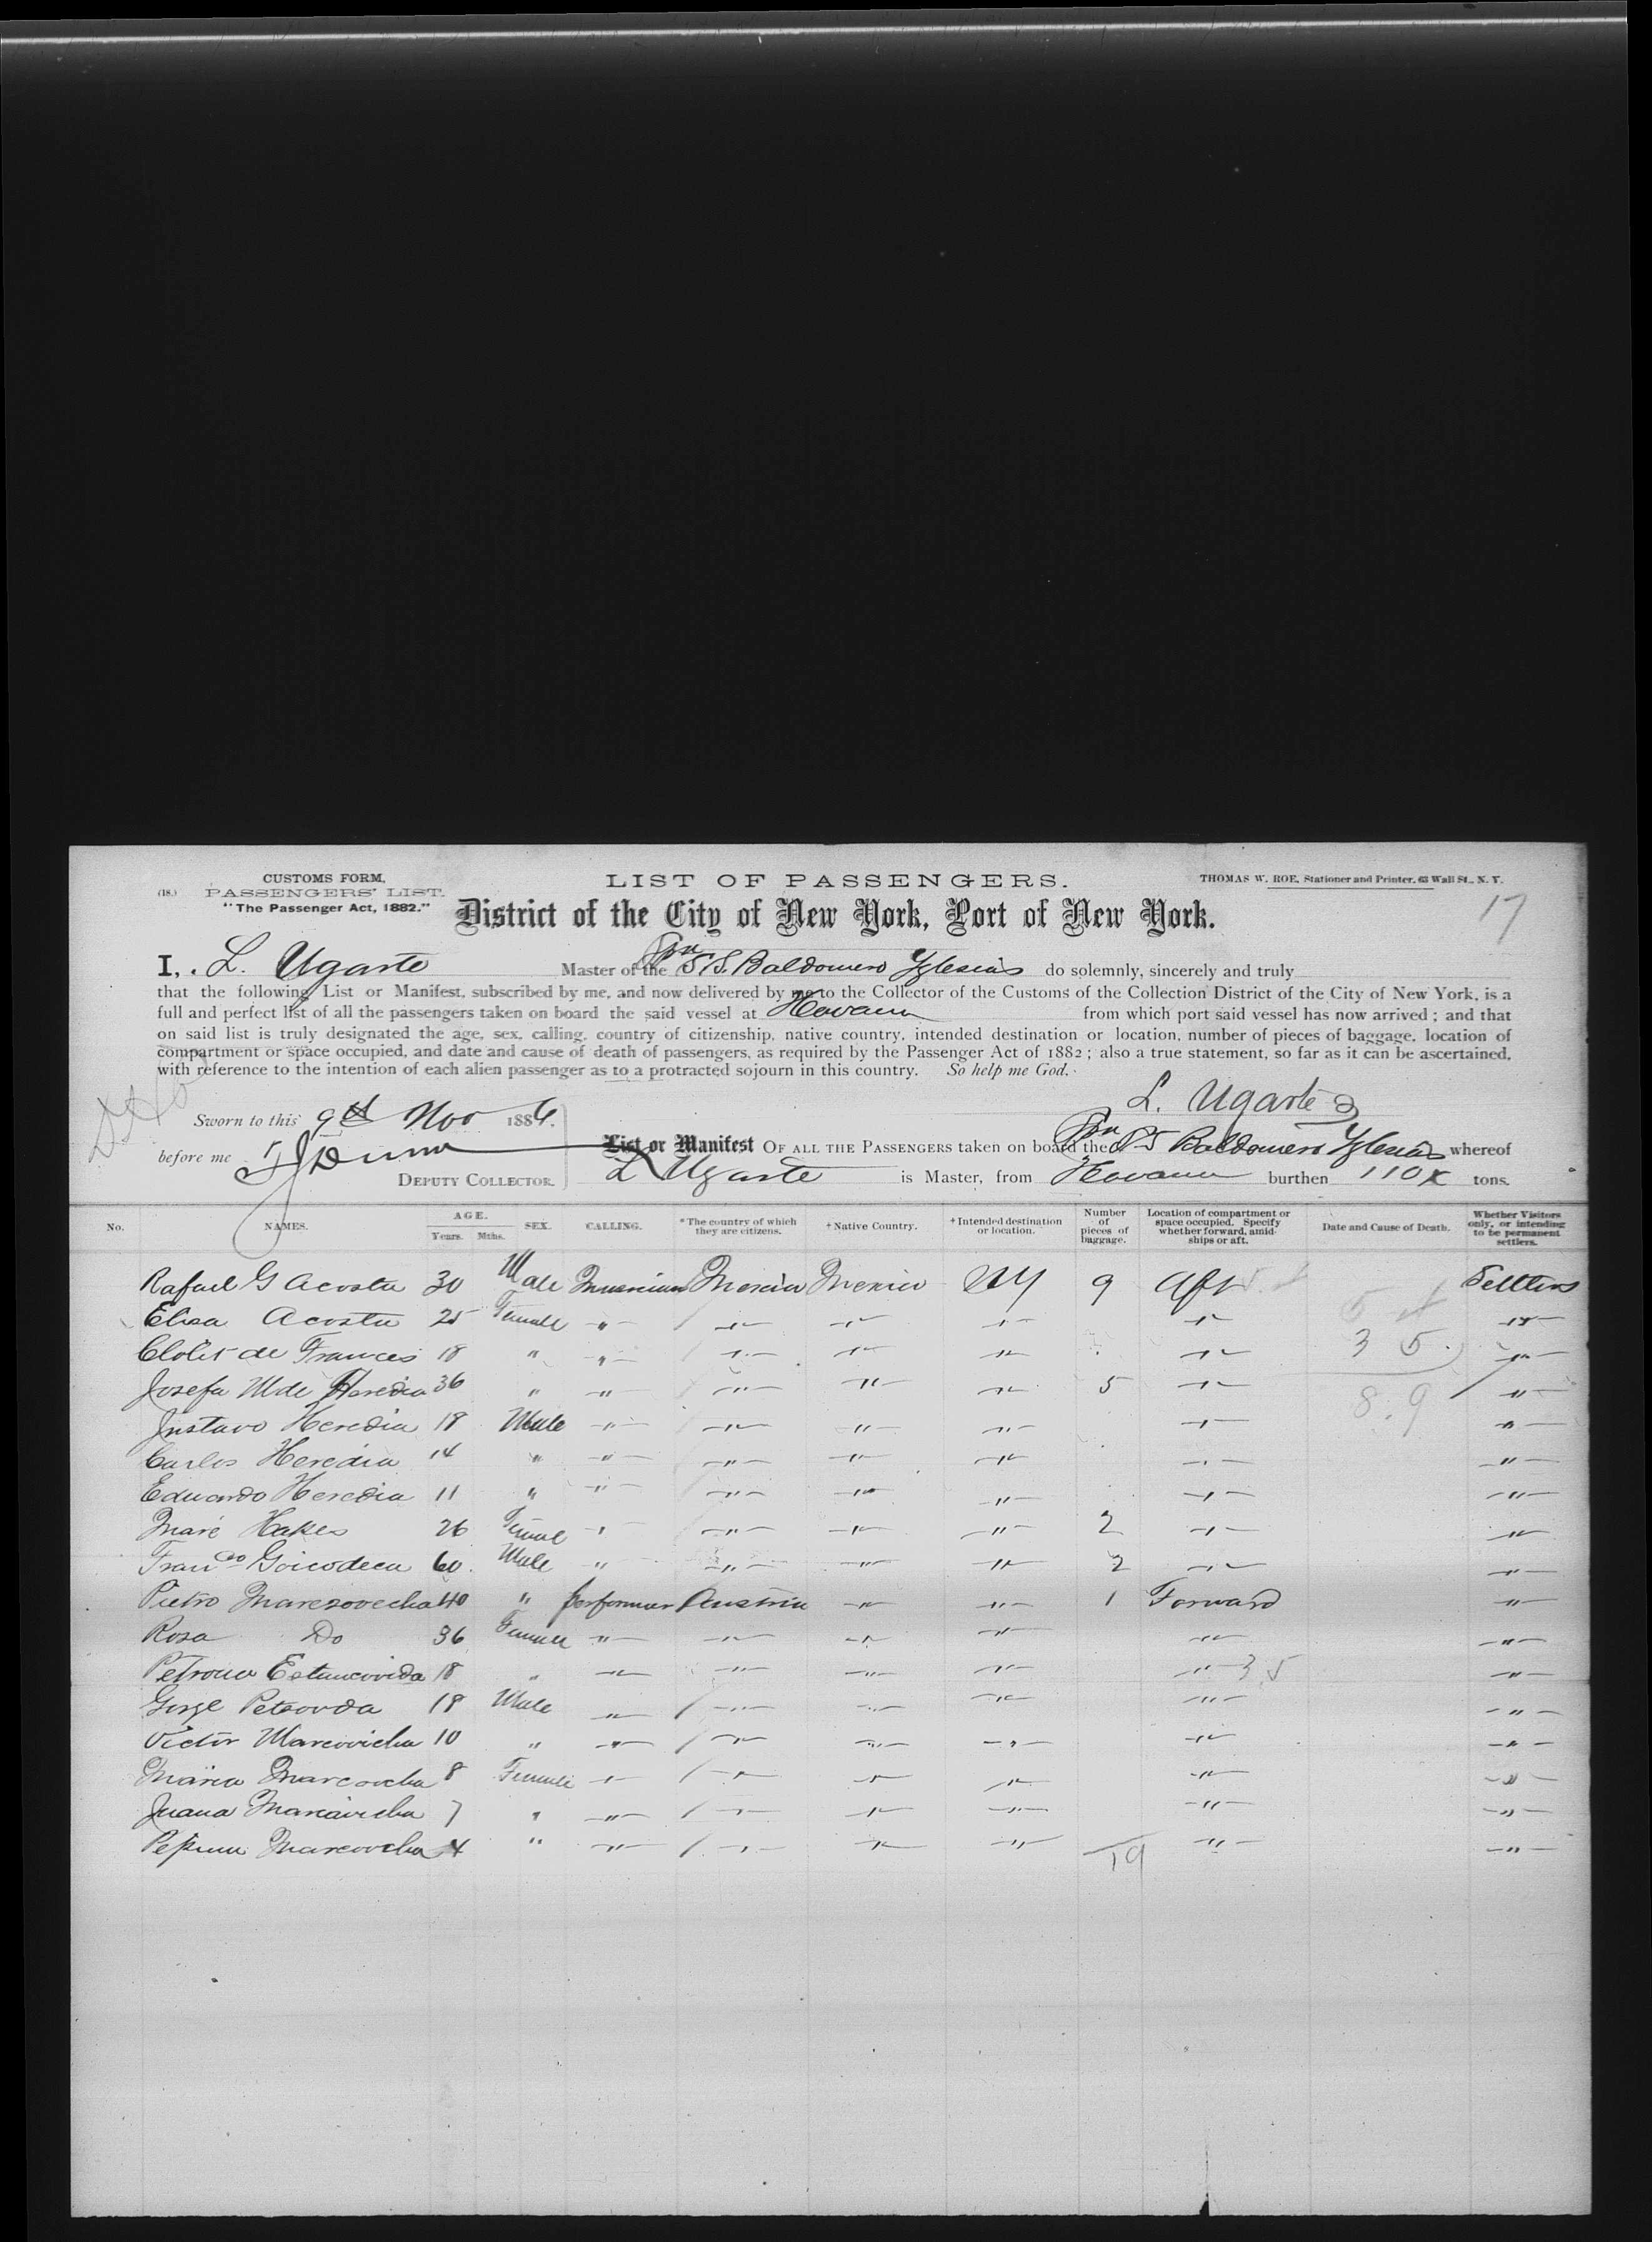 CUSTOMS FORM,
(18.) PASSENGERS' LIST.
"The Passenger Act, 1882."
LIST OF PASSENGERS.
THOMAS W. ROE, Stationer and Printer, 63 Wall St., N. Y.
17
District of the City of New York, Port of New York.
I, L. Ugarte Master of the Spn SS. Baldomero Yglesias do solemnly, sincerely and truly
that the following List or Manifest, subscribed by me, and now delivered by me to the Collector of the Customs of the Collection District of the City of New York, is a
full and perfect list of all the passengers taken on board the said vessel at Havana from which port said vessel has now arrived ; and that
on said list is truly designated the age, sex, calling, country of citizenship, native country, intended destination or location, number of pieces of baggage, location of
compartment or space occupied, and date and cause of death of passengers, as required by the Passenger Act of 1882 ; also a true statement, so far as it can be ascertained,
with reference to the intention of each alien passenger as to a protracted sojourn in this country. So help me God.
L. Ugarte
Sworn to this 9th Nov 1886.
before me
DEPUTY COLLECTOR.
List or Manifest OF ALL THE PASSENGERS taken on board the Spn SS Baldomero Yglesias whereof
L Ugarte is Master, from Havana burthen 110 tons.
No. NAMES. AGE. Years. Mths. SEX. CALLING. *The country of which they are citizens. †Native Country. †Intended destination or location. Number of pieces of baggage. Location of compartment or space occupied. Specify whether forward, amidships or aft. Date and Cause of Death. Whether Visitors only, or intending to be permanent settlers.
Rafael G Acosta 30 Male Mexico Mexico NY 9 Aft Settlers
Elisa Acosta 25 Female " " " " " "
Clolit de Frances 18 " " " " " " " 3 5
Josefa M de Heredia 36 " " " " " 5 " "
8.9
Justavo Heredia 18 Male " " " " " "
Carlos Heredia 14 " " " " " " "
Eduardo Heredia 11 " " " " " " "
Mare Hakes 26 Female " " " " 2 " "
Franco Goicodeca 60 Male " " " " 2 " "
Pietro 40 " performer Austria " " 1 Forward "
Rosa Do 36 Female " " " " " "
18 " " " " " " 35 "
Gorge Petsovda 18 Male " " " " " "
Victor Marcovicha 10 " " " " " " "
Maria Marcovcha 8 Female " " " " " "
Juana Marcavicha 7 " " " " " " "
Marcovcha 4 " " " " " " "
19